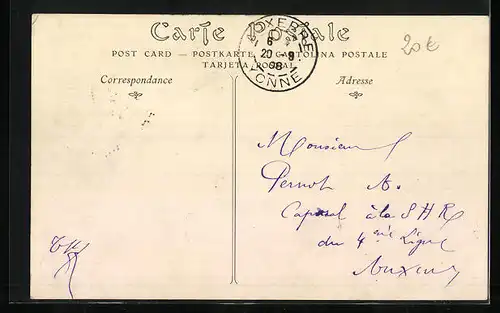 Carte Postale
POST CARD — POSTKARTE — CARTOLINA POSTALE
TARJETA POSTAL
Correspondance
Adresse
AUXERRE
6
20 - 9
08
YONNE
20€
Monsieur
Pernot A.
Caporal à la S H R
du 4ème Ligne
Auxerre